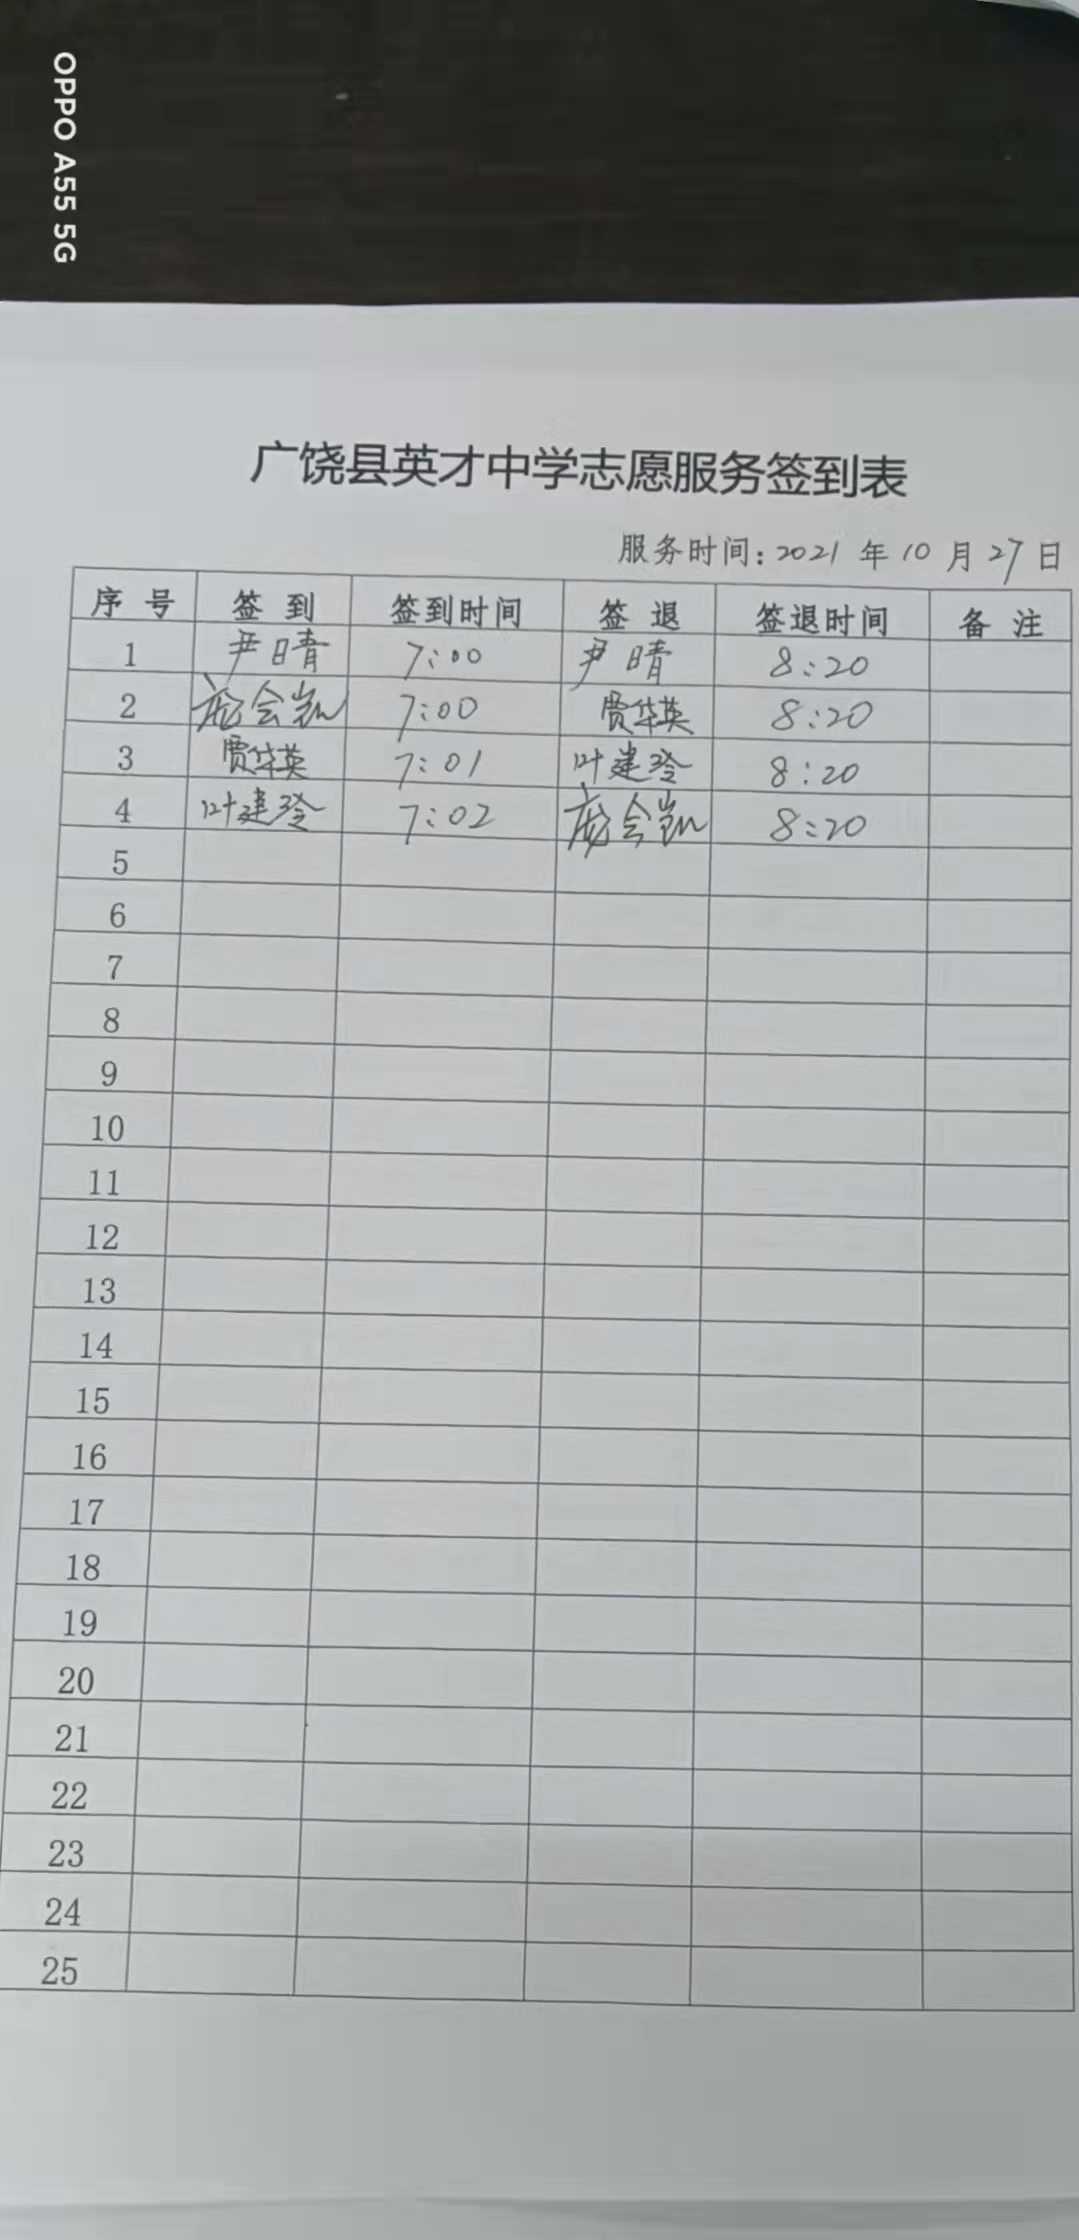 OPPO A55 5G
广饶县英才中学志愿服务签到表
服务时间:2021年10月27日
序号 签到 签到时间 签退 签退时间 备注
1 尹晴 7:00 尹晴 8:20
2 庞会凯 7:00 贾华英 8:20
3 贾华英 7:01 叶建玲 8:20
4 叶建玲 7:02 庞会凯 8:20
5
6
7
8
9
10
11
12
13
14
15
16
17
18
19
20
21
22
23
24
25